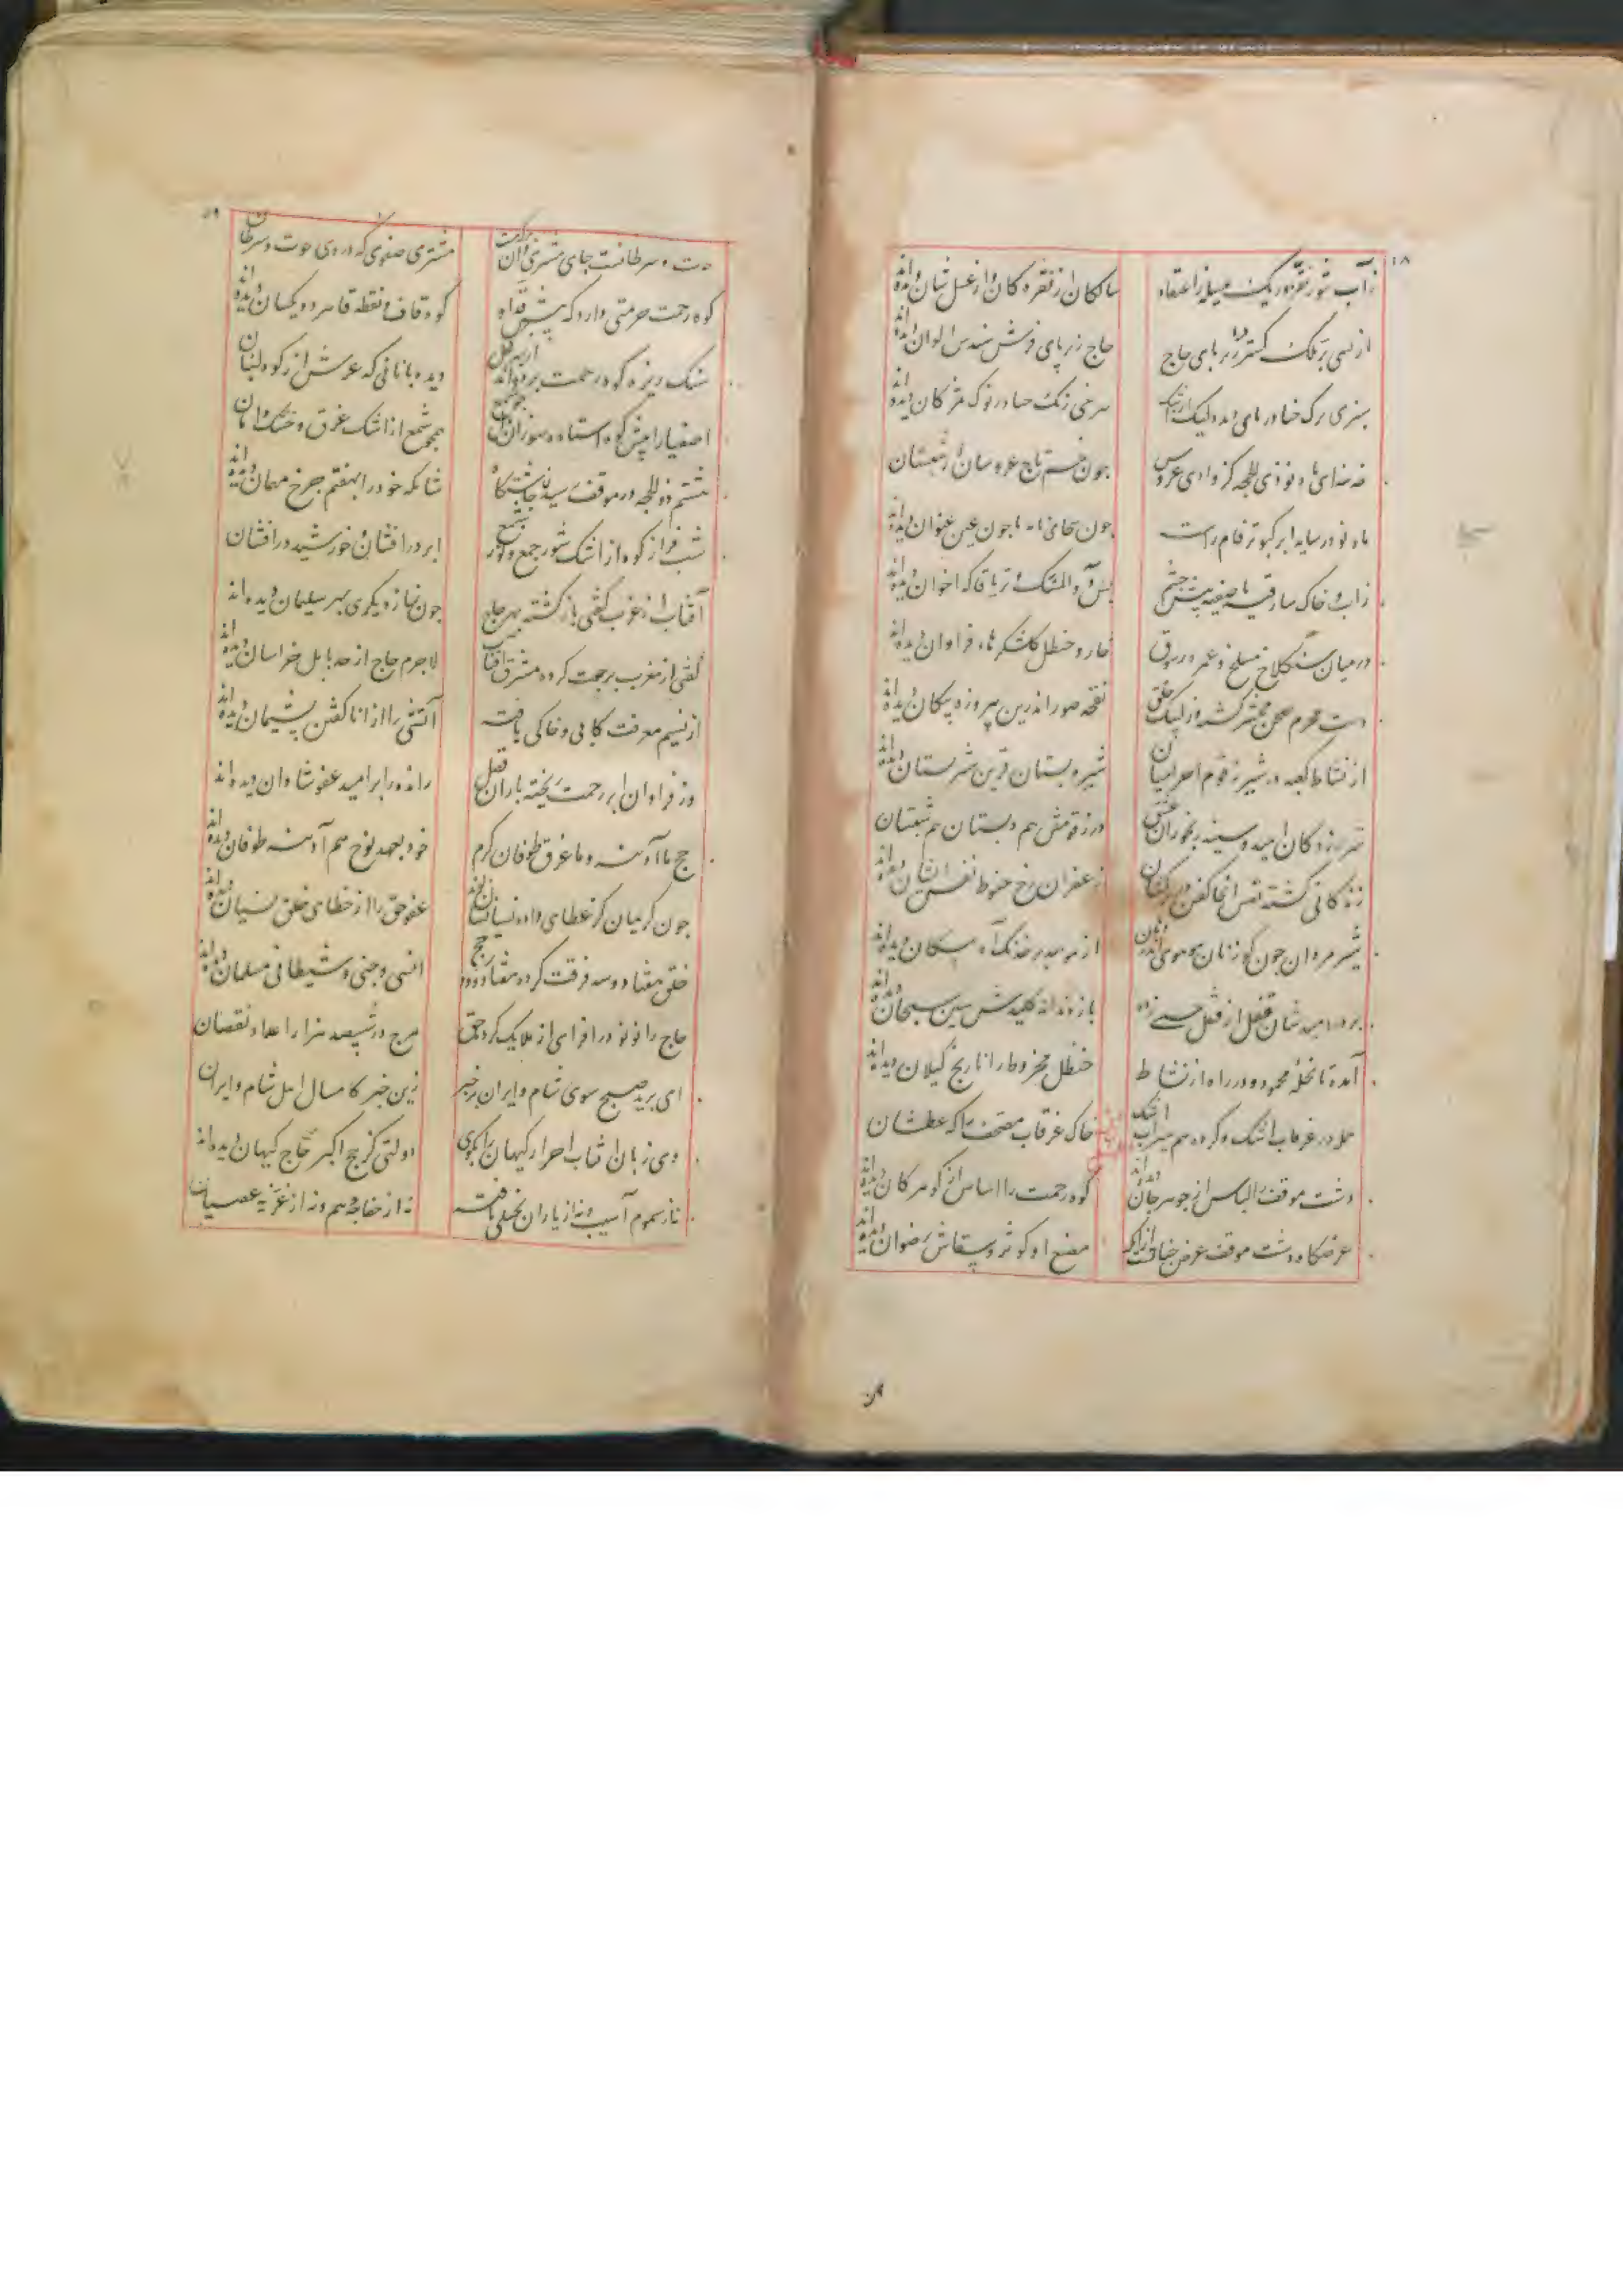 ۱۸
ز آب شور نقره و ریگ عسیله ز اعتقاد
سالکان از نقره کان و از عسل شان دیده‌اند
از پی بر ملک گسترده زیر پای حاج
حاج زیر پای فرش سندس الوان دیده‌اند
سبزی برگ حنا در پای دیده لیک از اشک
سرخی رنگ حنا در نوک مژگان دیده‌اند
چون تاج عروسان شبستان
ماه نو در سایه ابر کبوتر فام راست
چون سحای نامه یا چون عین عنوان دیده‌اند
ز آب و خاک سارقیه تا صفینه پیش چشم
بس دواء المسک و تریاقا که اخوان دیده‌اند
در میان سنگلاخ مسلخ و عمره ز شوق
خار و حنظل گلشکرها فراوان دیده‌اند
دشت محرم صحن محشر گشته وز لبیک خلق
نفخه صور اندرین پیروزه پنگان دیده‌اند
از نشاط کعبه در شیر زقوم احرامیان
شیره بستان قرین شیر پستان دیده‌اند
شیر زدگان امید و سینه رنجوران عشق
در زقومش هم دبستان هم شبستان
زندگانی کشته نفس آنجا کفن در بر کشان
زعفران رخ حنوط نفس ایشان دیده‌اند
شیر مردان چون گوزنان هوی هوی اندر دهان
از هو بر خدنگ آه پیکان دیده‌اند
بر در امیدشان قفل از فقل حسبی زده
باز دندانه کلیدش سین سبحان دیده‌اند
آمده تا نخله محمود و در راه از نشاط
حنظل مخروط را نارنج گیلان دیده‌اند
جمله در غرقاب اشک و کرده هم سیراب اشک
خاک غرقاب مصحف را که عطشان
دشت موقف را لباس از جوهر جان دیده‌اند
کوه رحمت را اساس از گوهر کان دیده‌اند
عرضگاه دشت موقف عرض جنات از آنکه
مصنع او کوثر و سقاش رضوان دیده‌اند
۱۹
حوت و سرطانست جای مشتری وان
مشتری صفوی که در وی حوت و سرطان
کوه رحمت حرمتی دارد که پیش قدر او
کوه قاف و نقطه قا هر دو یکسان دیده‌اند
سنگ ریزه کوه رحمت برده‌اند از بهر کحل
دیده بانانی که عرش از کوه لبنان
اصفیا را پیش کوه استاده
همچو شمع از اشک غرق و خشک دامان
هشتم ذوالحجه در موقف رسیده چاشتگاه
شامگه خود را بهفتم چرخ مهمان دیده‌اند
شب فراز کوه از اشک شور جمع و نور شمع
ابر در افشان و خورشید در افشان
آفتاب از غرب گفتی بازگشته بهر حاج
چون نماز دیگری بهر سلیمان دیده‌اند
گفتی از مغرب رجعت کرده مشرق آفتاب
لاجرم حاج از حد بابل خراسان دیده‌اند
از نسیم مغفرت کابی و خاکی یافته
آتشی را از انا گفتن پشیمان دیده‌اند
وز فراوان ابر رحمت ریخته باران فضل
رانده را بر امید عفو شادان دیده‌اند
حج ما آدینه و ما غرق طوفان کرم
خود بعهد نوح هم آدینه طوفان دیده‌اند
چون کریمان کز عطای داده نسیانشان
عفو حق را از خطای خلق نسیان دیده‌اند
خلق هفتاد و سه فرقت کرده هفتاد و دو حج
انسی و جنی و شیطانی مسلمان دیده‌اند
حاج را نو نو در افزای از ملایک کرد حق
هرچ در شیصد هزار اعداد نقصان
ای برید صبح سوی شام و ایران بر خبر
زین خبر کامسال اهل شام و ایران
وی زبان آفتاب احرار کیهان را بگوی
دولتی کز حج اکبر حاج کیهان دیده‌اند
نه از سموم آسیب و نه از باران یافته
نه از خفاجه هم و نه از غزیه عصیان